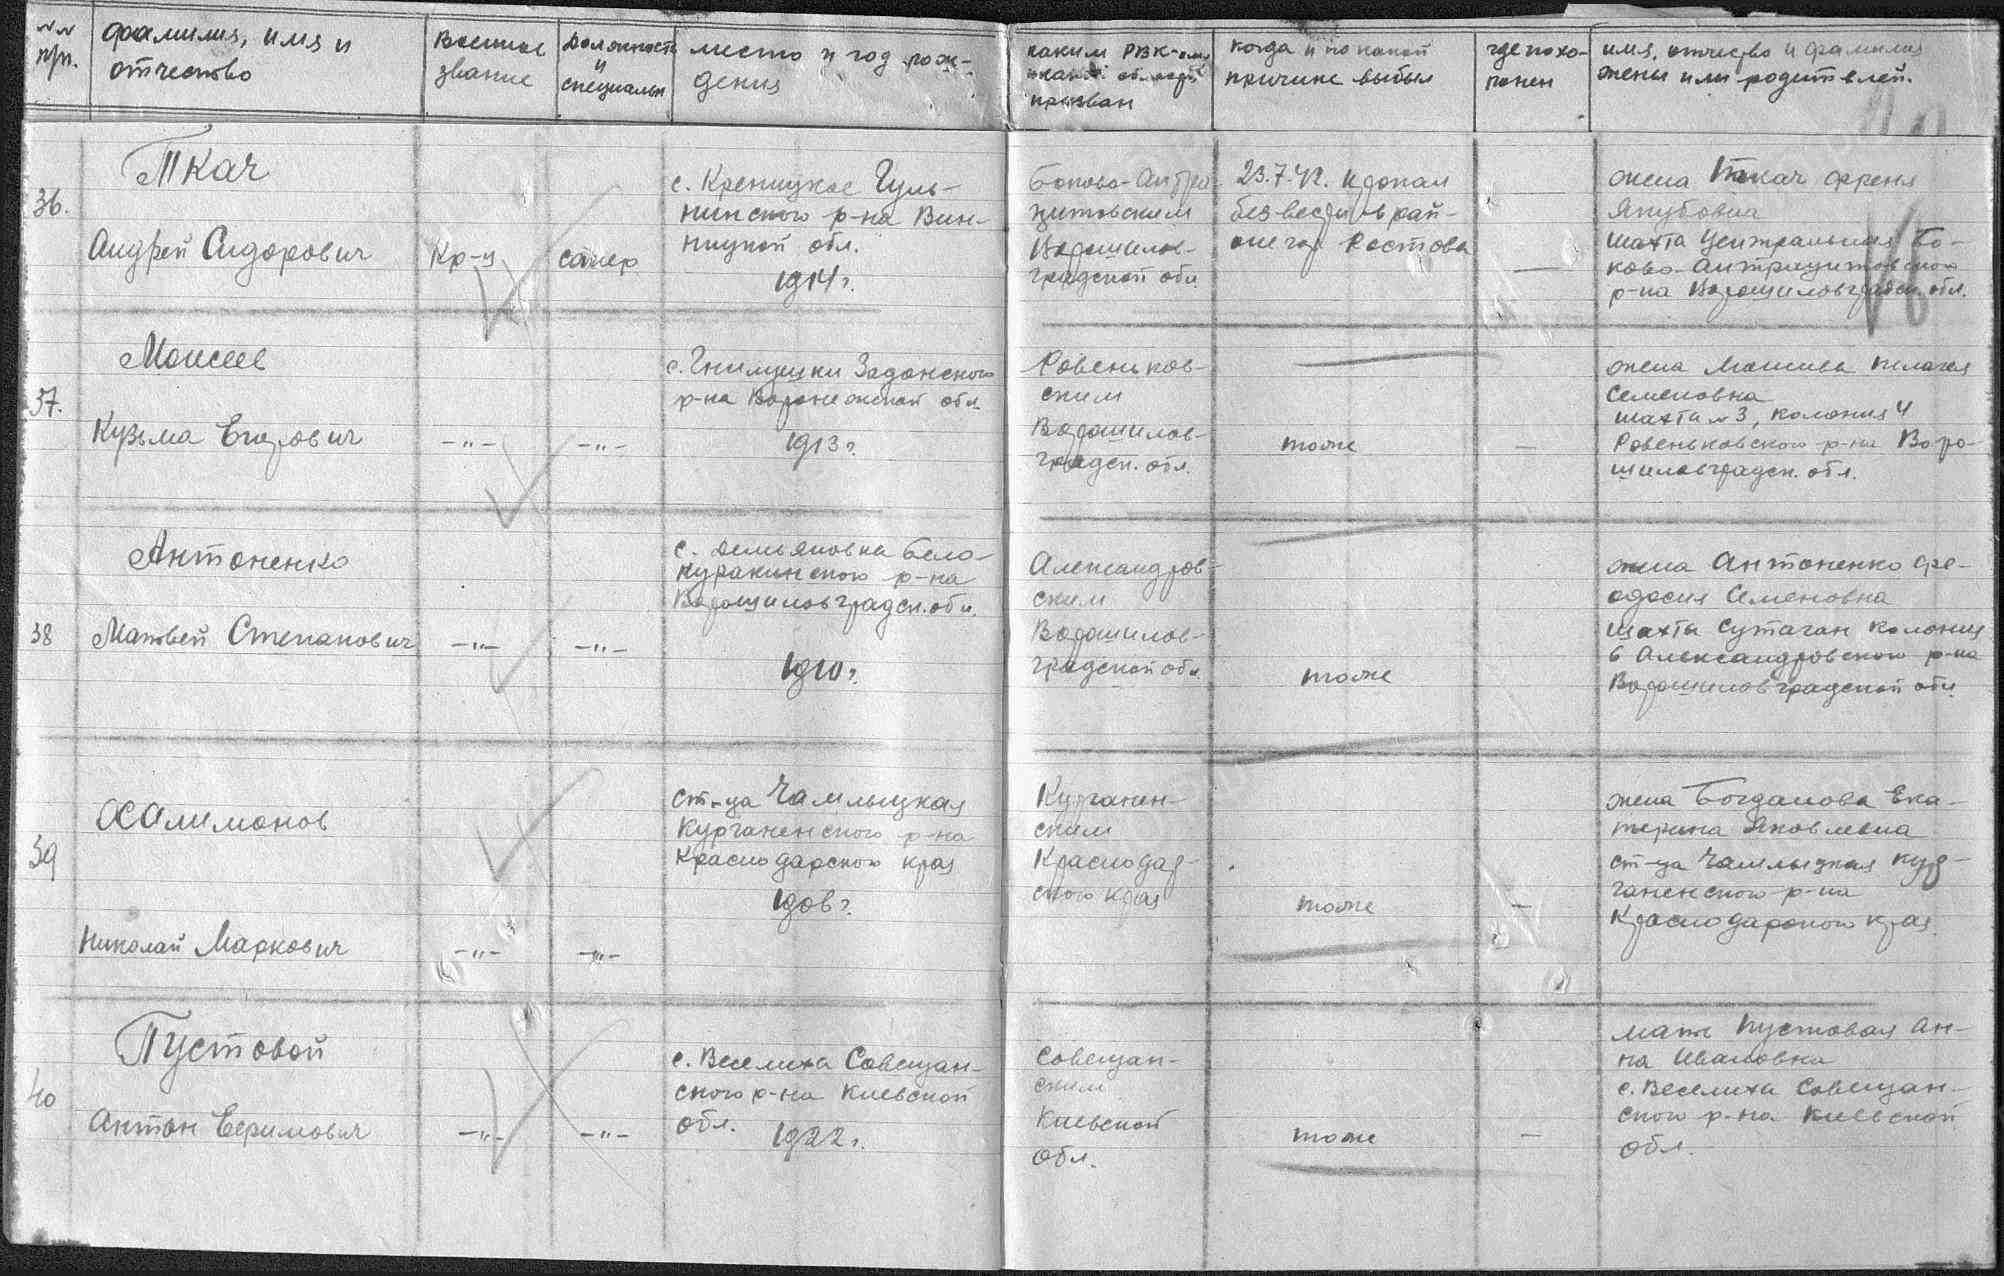 №№ п/п.
фамилия, имя и
отчество
Военное
звание
Должность
и
специальн
место и год рож-
дения
каким РВК-ом
какой области
призван
когда и по какой
причине выбыл
где похо-
ронен
имя, отчество и фамилия
жены или родителей.
36.
Ткач
Андрей Сидорович
Кр-ц
сапер
с.
нинского р-на Вин-
ницкой обл.
1914 г.
Боково-Антра
цитовским
Ворошилов-
градской обл
23.7.42. пропал
без вести в рай-
оне гор Ростова
—
жена Ткач
Якубовна
шахта Центральная Бо-
ково-Антрацитовского
р-на Ворошиловградск. обл.
37.
Моисеев
Кузьма Егорович
-"-
-"-
с. Гнилуши Задонского
р-на Воронежской обл
1913 г.
Ровеньков-
ским
Ворошилов-
градск. обл.
тоже
—
жена Моисеева Пелагея
Семеновна
шахта №3, колония 4
Ровеньковского р-на Воро-
шиловградск. обл.
38
Антоненко
Матвей Степанович
-"-
-"-
с. Демьяновка Бело-
куракинского р-на
Ворошиловградск. обл.
1910 г.
Александров-
ским
Ворошилов-
градской обл
тоже
жена Антоненко Фе-
одосия Семеновна
шахты Сутаган колония
6 Александровского р-на
Ворошиловградской обл
39
Халимонов
Николай Маркович
-"-
-"-
ст-ца Чамлыцкая
Курганенского р-на
Краснодарского края
1906 г.
Курганен-
ским
Краснодар-
ского края
тоже
—
жена Богданова Ека-
терина Яковлевна
ст-ца Чамлыцкая Кур-
ганенского р-на
Краснодарского края
40
Пустовой
Антон Ефимович
-"-
-"-
с. Веселиха Совещан-
ского р-на Киевской
обл. 1922 г.
Совещан-
ским
Киевской
обл.
тоже
—
мать Пустовая Ан-
на Ивановна
с. Веселиха Совещан-
ского р-на Киевской
обл.